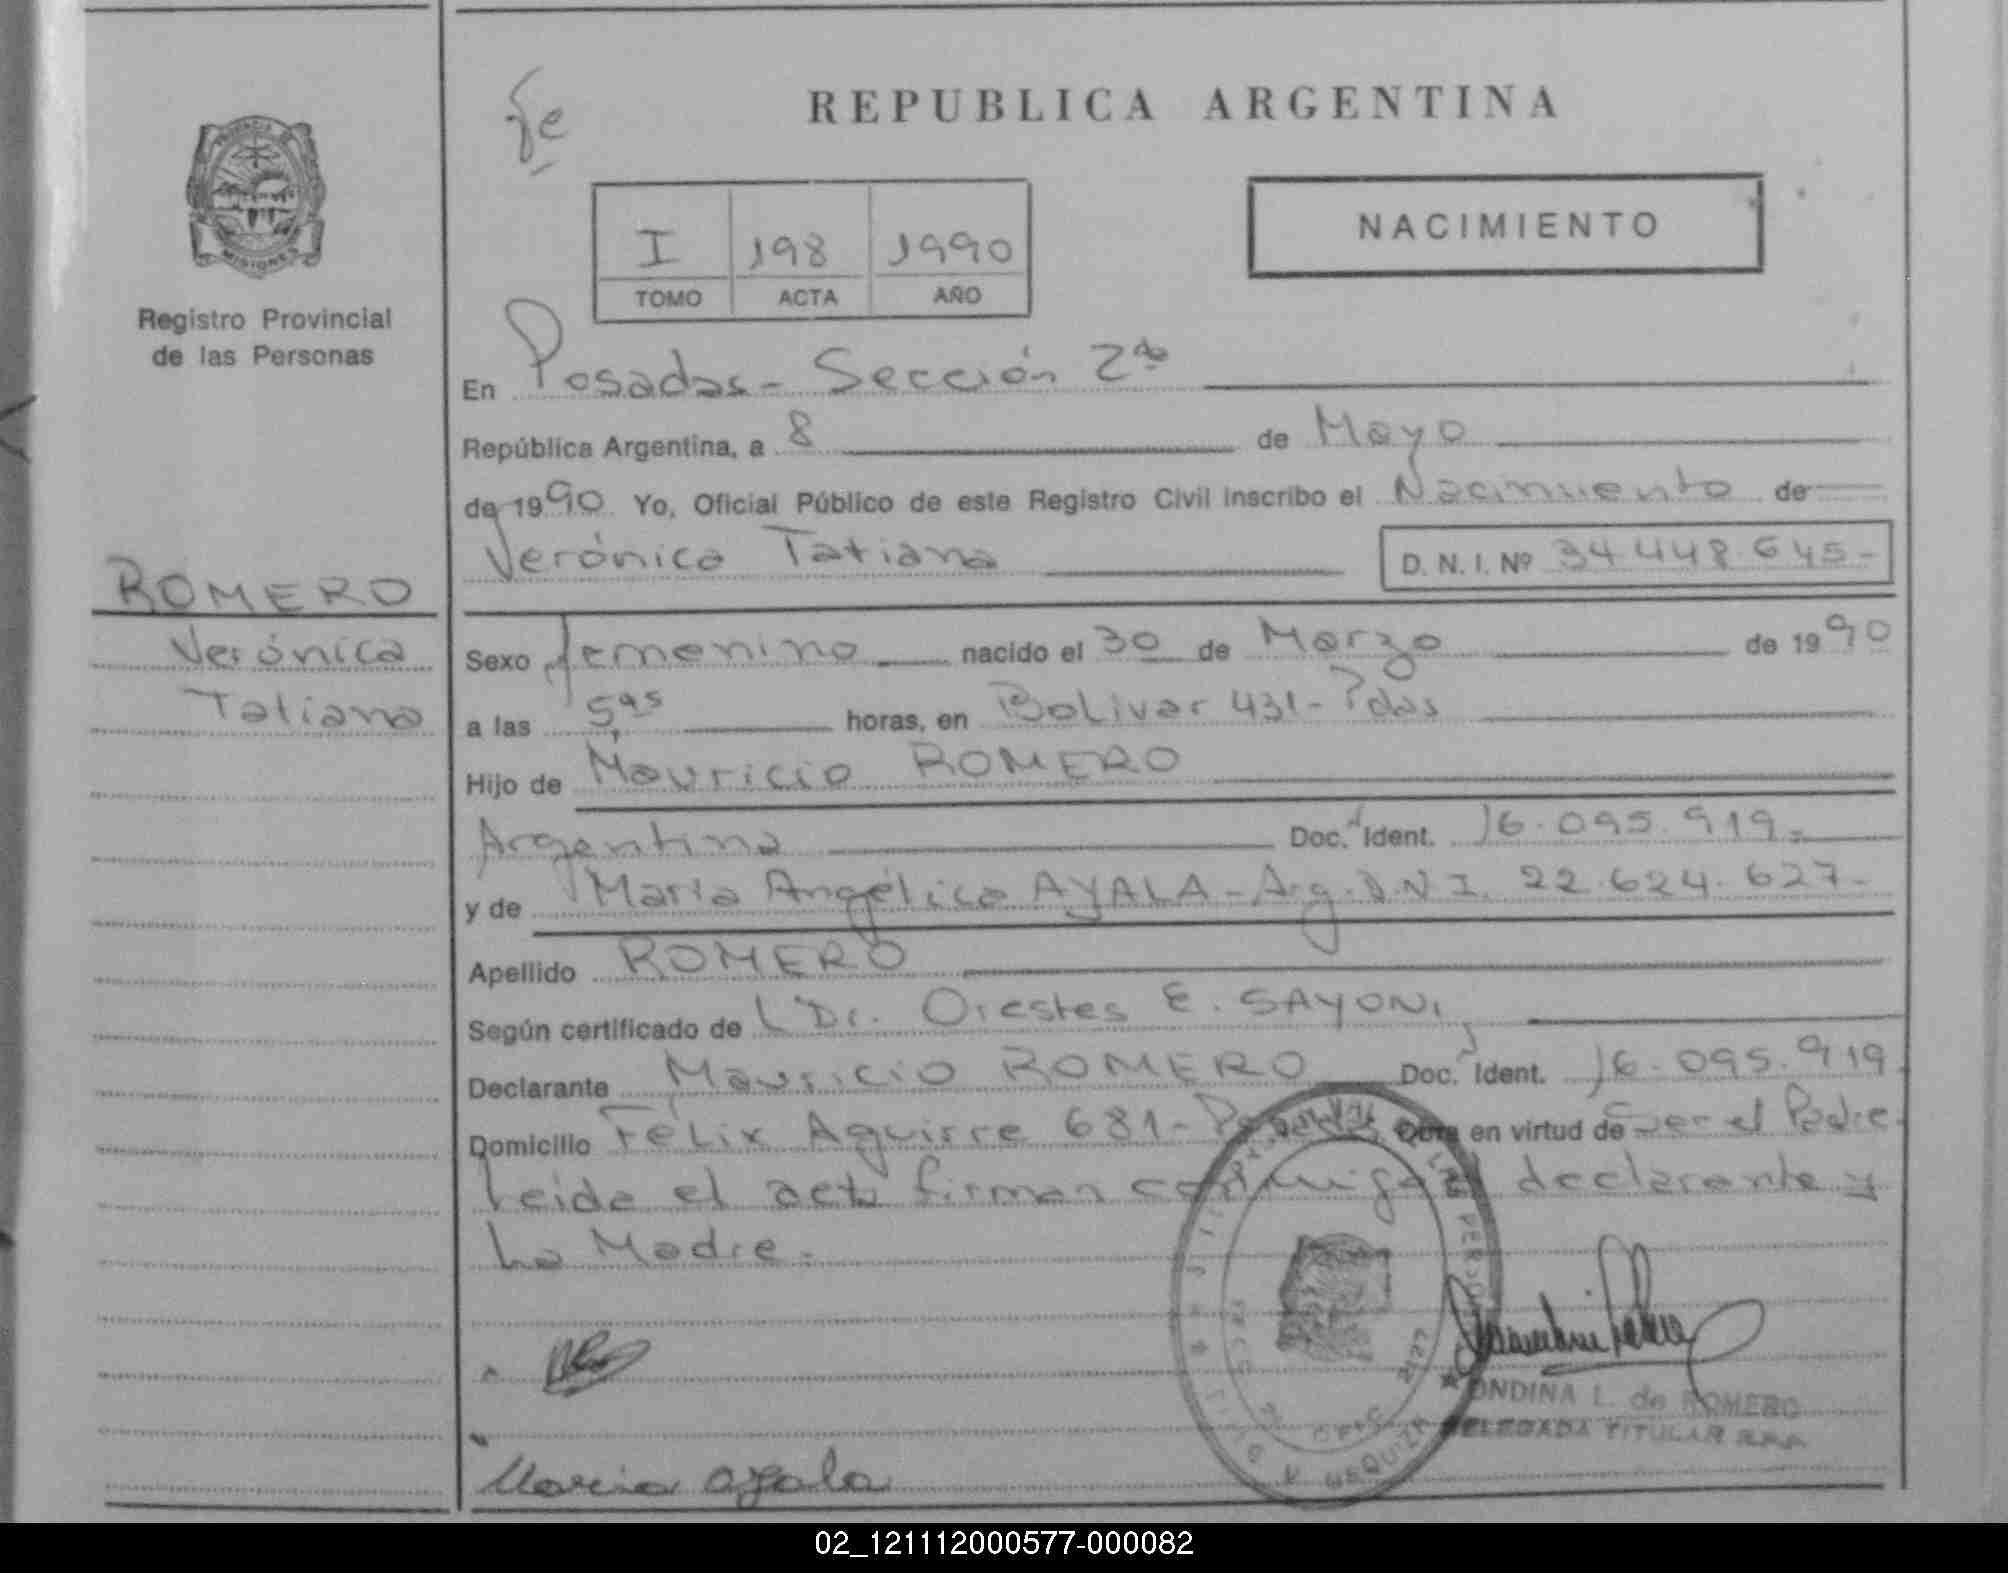 REPUBLICA ARGENTINA
PROVINCIA DE
MISIONES
Registro Provincial
de las Personas
I 198 1990
TOMO ACTA AÑO
NACIMIENTO
En Posadas - Sección 2da
República Argentina, a 8 de Mayo
de 1990. Yo, Oficial Público de este Registro Civil inscribo el Nacimiento de
Verónica Tatiana D. N. I. Nº 34.448.645-
ROMERO
Verónica
Tatiana
Sexo femenino nacido el 30 de Marzo de 1990
a las 5 horas, en Bolivar 431 - Pdas
Hijo de Mauricio ROMERO
Argentina Doc. Ident. 16.095.919.-
y de María Angélica AYALA - Arg. D.N.I. 22.624.627-
Apellido ROMERO
Según certificado de Dr. Orestes E. SAYONI
Declarante Mauricio ROMERO Doc. Ident. 16.095.919
Domicilio Félix Aguirre 681 - en virtud de Ser el Padre.
Leida el acta firman conmigo el declarante y
La Madre.-
ONDINA L. de ROMERO
DELEGADA TITULAR
Maria ayala
02_121112000577-000082